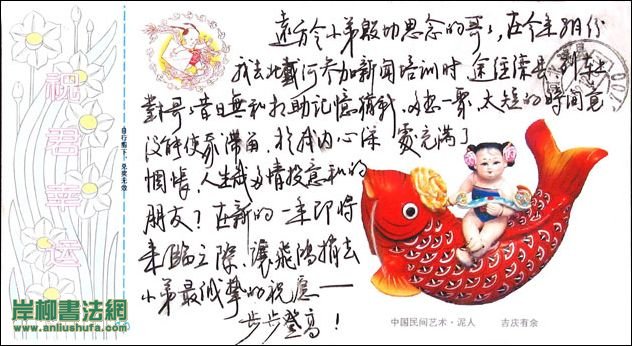 祝君幸运
自行剪下,兑奖无效
远方令小弟殷切思念的哥:在今年8月份
我去北戴河参加新闻培训时途经滦县,到车站
对哥:昔日无私扶助记忆犹新,欢愁一聚,太短的时间竟
没能使我滞留,于我内心深处充满了
惆怅,人生感多情投意和的
朋友?在新的一年即将
来临之际,让飞鸿捎去
小弟最诚挚的祝愿——
步步登高!
中国民间艺术·泥人 吉庆有余
岸柳書法網
www.anliushufa.com